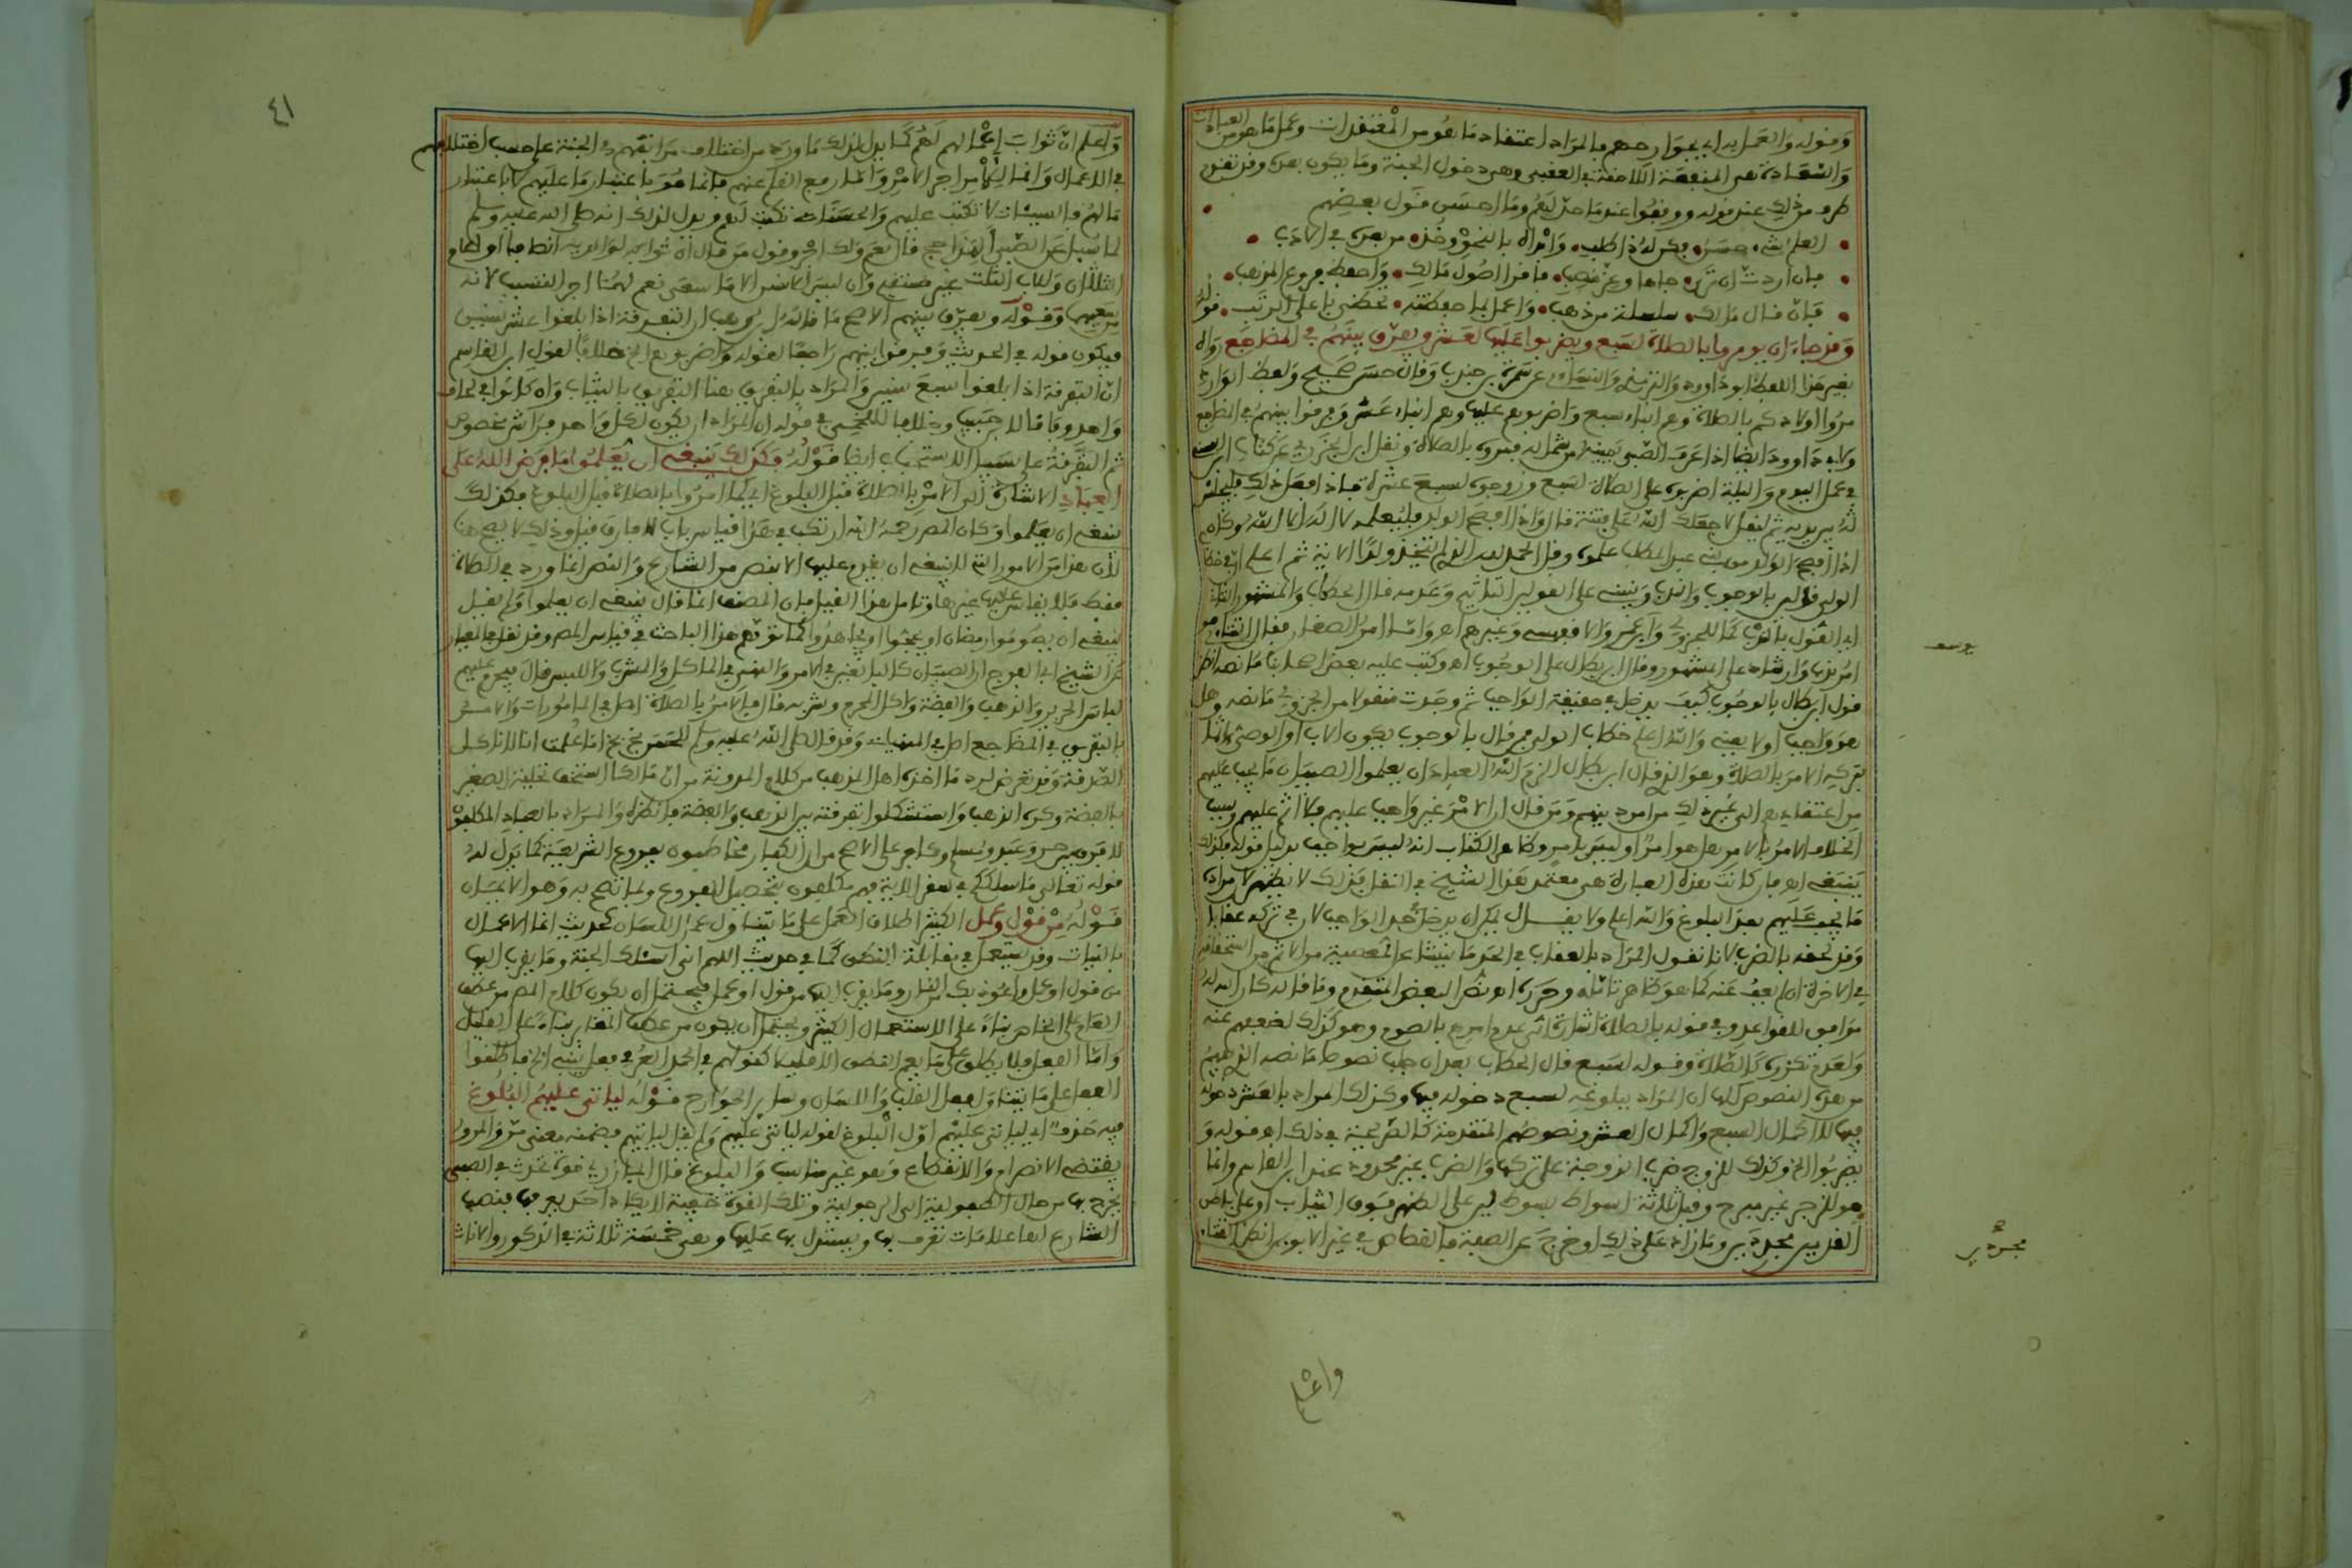 وقوله والعمل به اي بجوارحهم فالمراد اعتقاد ما هو من المعتقدات وعمل ما هو من العبادات
والسعادة هي المنفعة اللاحقة في العقبى وهي دخول الجنة وما يكون بعده وقد تقدم
طرف من ذلك عند قوله ووقفوا عند ما حد لهم وما احسن قول بعضهم
العلم شيء حسن فكن له ذا طلب وابدأه بالنحو وخذ من بعده في الادب
فان اردت ان ترى جاها وعز منصب فاقرأ اصول مالك واحفظ فروع المذهب
فان قال مالك سلسلة من ذهب واعمل بما حفظته تحظى باعلى الرتب قوله
وقد جاء ان يومروا بالصلاة لسبع ويضربوا عليها لعشر ويفرق بينهم في المضاجع رواه
بغير هذا اللفظ ابو داود والترمذي والنساءي عن سمرة بن جندب وقال حسن صحيح ولفظ الوارد
مروا اولادكم بالصلاة وهم ابناء سبع واضربوهم عليها وهم ابناء عشر وفرقوا بينهم في المضاجع
ولابي داوود ايضا اذا عرف الصبي يمينه من شماله فمروه بالصلاة ونقل ابن الجزري عن كتاب ابن السني
في عمل اليوم والليلة اضربوه على الصلاة لسبع وزوجوه لسبع عشرة فاذا فعل ذلك فليجلس
له بين يديه ثم ليقل لا جعلك الله علي فتنة قال واذا افصح الولد فليعلمه لا اله الا الله وكان
اذا افصح الولد من بني عبد المطلب علمه وقل الحمد لله الذي لم يتخذ ولدا الاية ثم اعلم ان في خطاب
الولي قولين بالوجوب والندب
اي القول بالندب كما للجزولي وابن عمر والاقفهسي وغيرهم اهـ واما امر الصغار فقال
امر ندب وارشاد على المشهور وقال ابن بطال على الوجوب اهـ وكتب عليه بعض اصحابنا ما نصه انظر
قول ابن بطال بالوجوب كيف يدخل في حقيقة الواجب ثم وجدت منقولا من الجزولي ما نصه وهل
هو واجب او لا يعني والله اعلم خطاب الولي فمن قال بالوجوب يكون الاب او الوصي ءاثما
بتركه الامر بالصلاة وهو الذي قال ابن بطال الزم الله العباد ان يعلموا الصبيان ما يجب عليهم
من اعتقاداتهم الى غير ذلك من امر دينهم ومن قال ان الامر غير واجب عليهم فلا اثم عليهم وسبب
الخلاف الامر بالامر هل هو امر او ليس بامر وظاهر الكتاب انه ليس بواجب بدليل قوله فكذلك
ينبغي اهـ فان كانت هذه العبارة هي معتمد هذا الشيخ في النقل فذلك لا يظهر لان مراده
ما يجب عليهم بعد البلوغ والله اعلم ولا يقال يمكن ان يدخل في حد الواجب لان في تركه عقابا
وقد لحقه بالضرب لانا نقول المراد بالعقاب في الحد ما ينشا عن المعصية من الاثم من استحقاقه
في الاخرة ان لم يعف عنه كما هو ظاهر تامله وحرره
موافق للقواعد وفي قوله بالصلاة اشارة الى عدم امرهم بالصوم وهو كذلك لضعفهم عنه
ولعدم تكرره كالصلاة وقوله لسبع قال الحطاب بعد ان جلب نصوصا ما نصه الذي يفهم
من هذه النصوص كلها ان المراد ببلوغه لسبع دخوله فيها وكذلك المراد بالعشر دخوله
فيها لا اكمال السبع واكمال العشر ونصوصهم المتقدمة كالصريحة في ذلك اهـ قوله و
يضربوا الخ وكذلك للزوج ضرب الزوجة على تركها والضرب غير محدود عند ابن القاسم وانما
هو للزجر غير مبرح وقيل ثلاثة اسواط بسوط لين على الظهر فوق الثياب او على باطن
القدمين مجردين وما زاد على ذلك او خرج عن الصفة فالقصاص في غير الابوين انظر الفشني
مجردين
واعلم
٤١
واعلم ان ثواب اعمالهم لهم كما يدل لذلك ما ورد من اختلاف مراتبهم في الجنة على حسب اختلافهم
في الاعمال وانما لهم اجر الامر واما رفع القلم عنهم فانما هو باعتبار ما عليهم لا باعتبار
ما لهم فالسيئات لا تكتب عليهم والحسنات تكتب لهم ويدل لذلك انه صلى الله عليه وسلم
لما سيل عن الصبي الهذا حج قال نعم ولك اجر وقول من قال ان ثوابه لوالديه انصافا او للام
الثلثان وللاب الثلث غير مستقيم وان ليس للانسان الا ما سعى نعم لهما اجر التسبب لانه
من سعيهم وقوله ويفرق بينهم الاصح ما قاله ابن وهب ان التفرقة اذا بلغوا عشر سنين
فيكون قوله في الحديث وفرقوا بينهم راجعا لقوله واضربوهم الخ خلافا لقول ابن القاسم
ان التفرقة اذا بلغوا سبع سنين والمراد بالتفريق هنا التفريق بالثياب وان كانوا في لحاف
واحد وفاقا لابن حبيب وخلافا للخمي في قوله ان المراد ان يكون لكل واحد فراش مخصوص
ثم التفرقة على سبيل الاستحباب ايضا قوله فكذلك ينبغي ان يعلموا ما فرض الله على
العباد الاشارة الى الامر بالصلاة قبل البلوغ اي كما امروا بالصلاة قبل البلوغ فكذلك
ينبغي ان يعلموا وكان المص رحمه الله ارتكب في هذا قياس باب لا فارق قيل وذلك لا يصح هنا
لان هذا من الامور التي لا ينبغي ان يقدم عليها الا بنص من الشارع والنص انما ورد في الصلاة
فقط فلا يقاس عليها غيرها وتامل هذا القيل فان المصنف انما قال ينبغي ان يعلموا ولم يقل
ينبغي ان يصوموا رمضان او يحجوا او يجاهدوا كما توهم هذا الباحث في قياس المص وقد نقل
عن الشيخ ابي الفرج ان الصبيان كالبالغين في الامر والنهي في الماكل والمشرب والملبس قال فيحرم عليهم
لباس الحرير والذهب والفضة واكل المحرم وشربه قال فالامر بالصلاة اصل في المامورات والامر
بالتفريق في المضاجع اصل في المنهيات وقد قال صلى الله عليه وسلم للحسن كخ كخ اما علمت انا لا ناكل
الصدقة وقد تعرض لرد ما اخذه اهل المذهب من كلام المدونة من ان مالكا استخف تحلية الصغير
بالفضة وكره الذهب واستشكلوا تفرقته بين الذهب والفضة فانظره والمراد بالعباد المكلفون
لا فرق بين حر وعبد ومسلم وكافر على الاصح من ان الكفار مخاطبون بفروع الشريعة كما يدل له
قوله تعالى ما سلككم في سقر الاية فهم مكلفون بتحصيل الفروع وبما تصح به وهو الايمان
قوله من قول وعمل الكثير اطلاق العمل على ما يتناول عمل اللسان كحديث انما الاعمال
بالنيات وقد يستعمل في مقابلة النطق كما في حديث اللهم اني اسئلك الجنة وما يقرب اليها
من قول او عمل واعوذ بك من النار وما يقرب اليها من قول او عمل فيحتمل ان يكون كلام المص من عطف
العام على الخاص بناء على الاستعمال الكثير ويحتمل ان يكون من عطف المغاير بناء على القليل
واما الفعل فلا يطلق على ما يعم النطق الا قليلا كقولهم في الحد العرفي فعل ينبئ الخ فاطلقوا
الفعل على ما يتناول فعل القلب واللسان وساير الجوارح قوله لياتي عليهم البلوغ
فيه حذف اي لياتي عليهم اول البلوغ لقوله لياتي عليهم ولم يقل لياتيهم فضمنه معنى مر والمرور
يقتضي الانصرام والانقطاع وهو غير مناسب والبلوغ قال المازري قوة تحدث في الصبي
يخرج بها من حال الطفولية الى الرجولية وتلك القوة خفية لا يكاد احد يعرفها فنصب
الشارع لها علامات تعرف بها ويستدل بها عليها وهي خمسة ثلاثة في الذكور والاناث